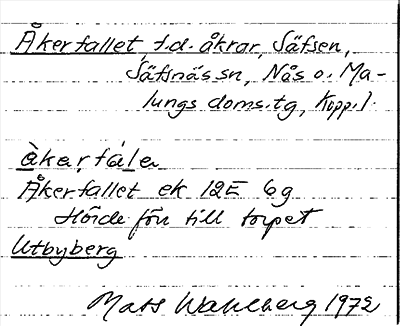 Åkerfallet, f.d. åkrar, Säfsen,
Säfsnäs sn, Nås o. Ma-
lungs doms.tg, Kopp.l.
àkerfálen
Åkerfallet ek 12E 6g
Hörde förr till torpet
Utbyberg
Mats Wahlberg 1972